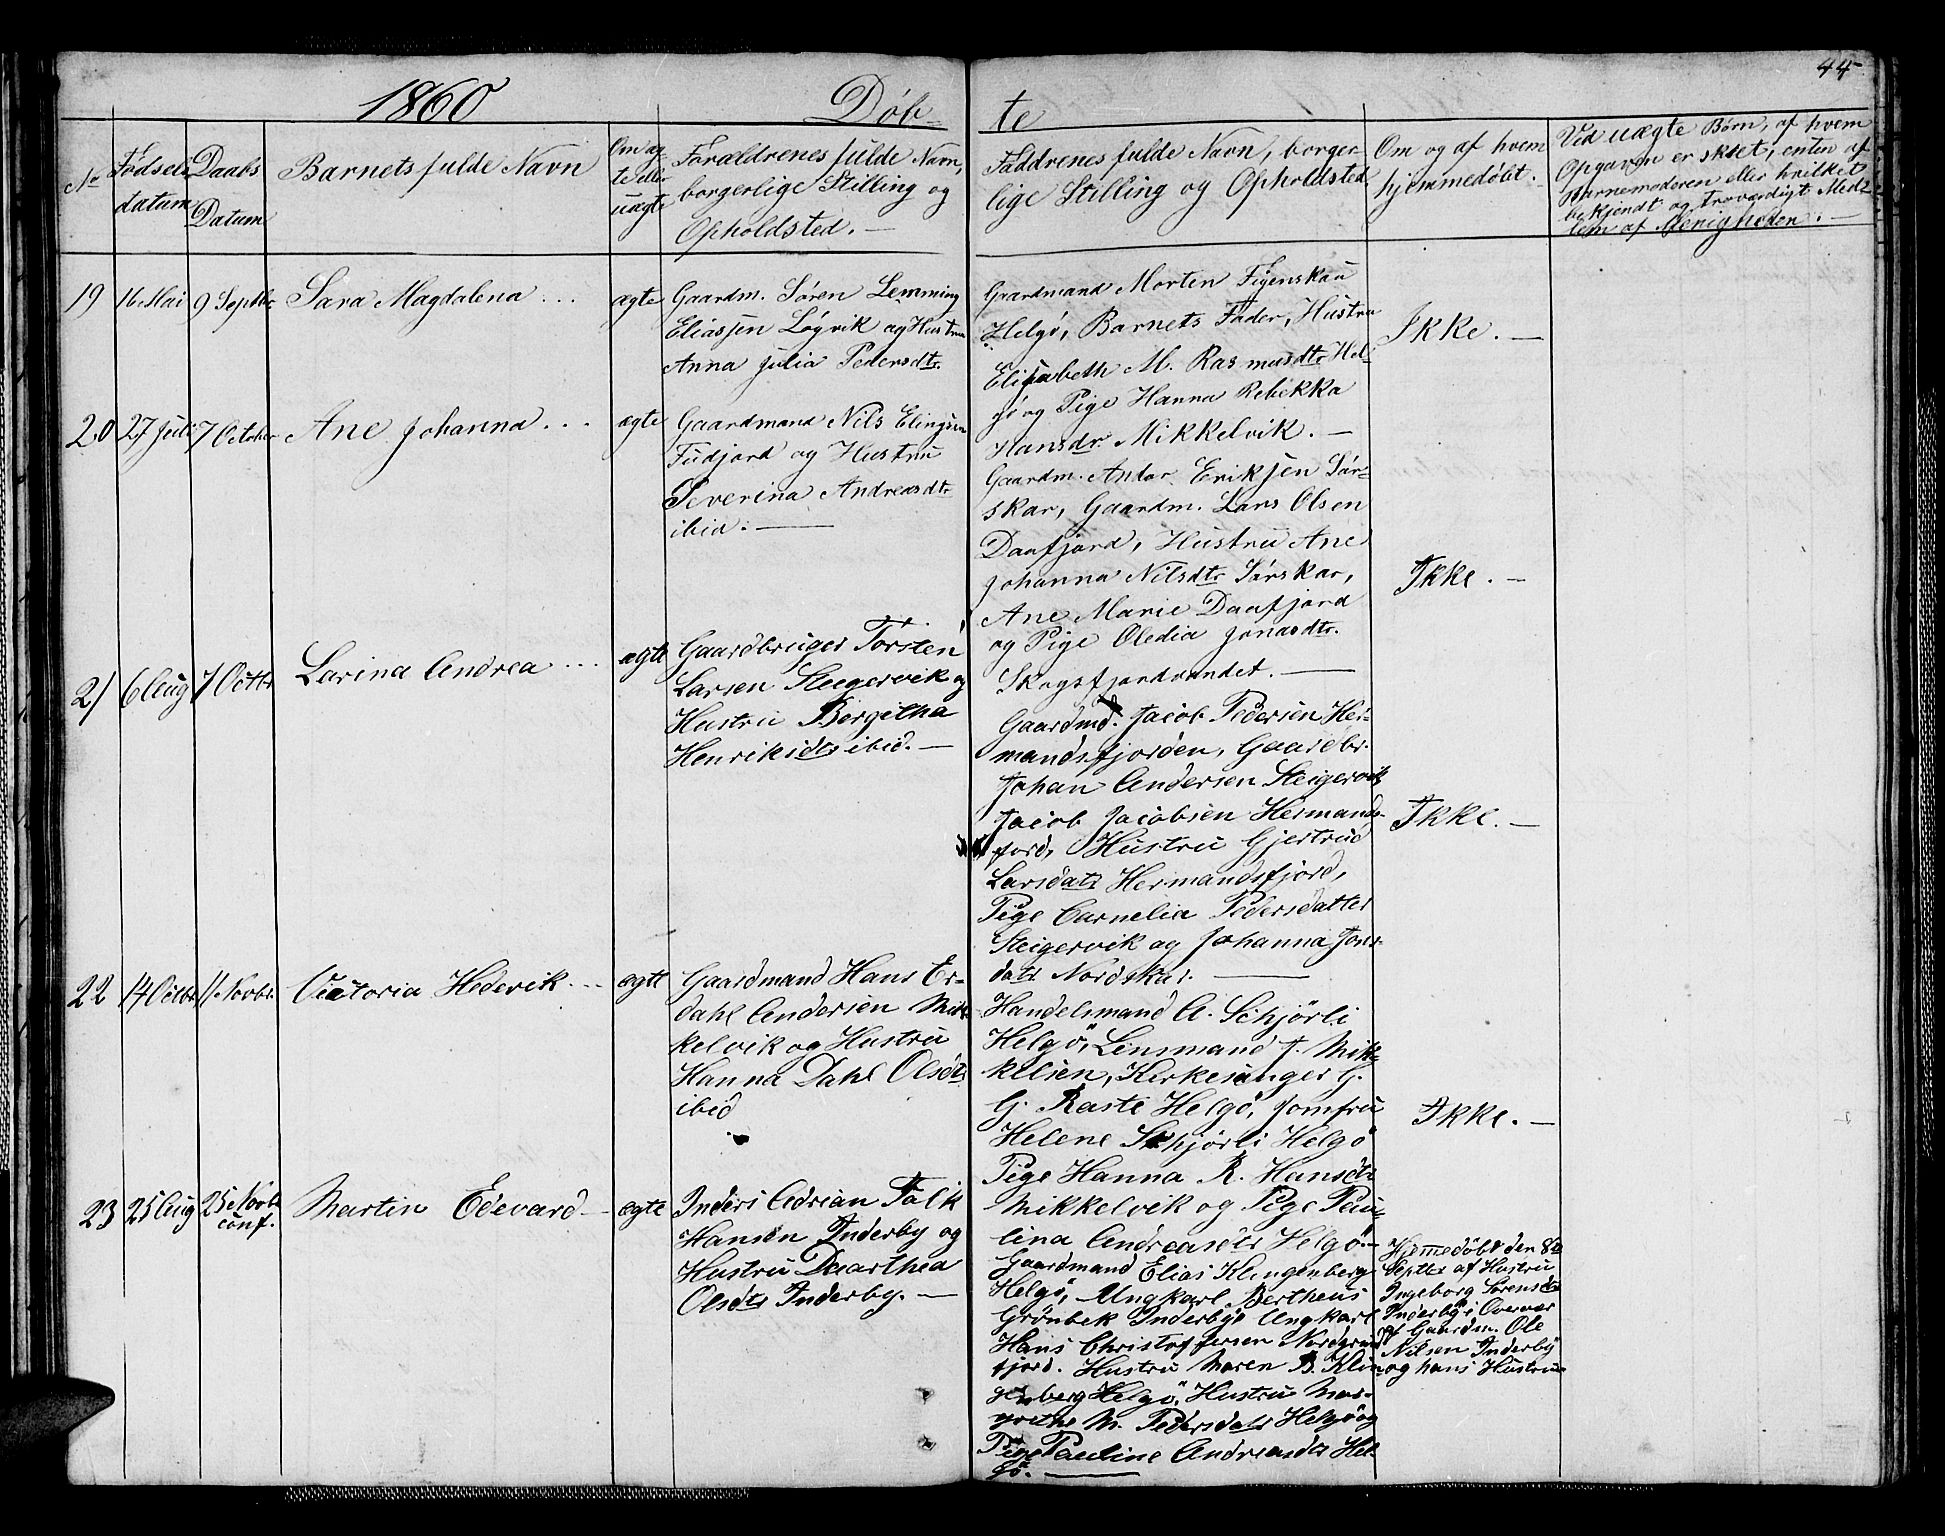 44
1860 Döb-
te
No
Födsels
datum
Daabs
Datum
Barnets fulde Navn
Om æg-
te eller
uægte
Forældrenes fulde Navn,
borgerlige Stilling og
Opholdsted. —
Faddrenes fulde Navn, borger-
lige Stilling og Opholdsted
Om og af hvem
hjemmedöbt.
Ved uægte Börn, af hvem
Opgaven er skeet, enten af
Barnemoderen eller hvilket
bekjendt og troværdigt Med-
lem af Menigheden. —
19 16 Mai 9 Septbr Sara Magdalena ... ægte
Gaardm. Sören Lemming
Eliassen Lögvik og Hustru
Anna Julia Pedersdtr.
Gaardmand Morten Figenskau
Helgö, Barnets Fader, Hustru
Elisabeth M. Rasmusdtr Hel-
gö og Pige Hanna Rebekka
Hansdr. Mikkelvik. —
Ikke. —
20 27 Juli 7 October Ane Johanna ... ægte
Gaardmand Nils Elingsen
Fudjord og Hustru
Severina Andreasdtr
ibid. —
Gaardm. Antor Eriksen Sör-
skar, Gaardm. Lars Olsen
Daafjord, Hustru Ane
Johanna Nilsdtr Sörskar,
Ane Marie Daafjord
og Pige Oledia Jonasdtr.
Skogsfjordvandet. —
Ikke. —
21 6 Aug 7 Octbr Larina Andrea ... ægte
Gaardbruger Torsten
Larsen Steigervik og
Hustru Bergitha
Henriksdtr ibid. —
Gaardmd. Jacob Pedersen Her-
mandsfjorden, Gaardbr.
Johan Andersen Steigervik
Jacob Jacobsen Hermands-
fjord, Hustru Gjertrud
Larsdatr Hermandsfjord,
Pige Carnelia Pedersdatter
Steigervik og Johanna Jons-
datr Nordskar. —
Ikke. —
22 14 Octbr 11 Novbr Victoria Hedevik ... ægte
Gaardmand Hans Er-
dahl Andersen Mik-
kelvik og Hustru
Hanna Dahl Olsdtr
ibid
Handelsmand A. Schjörli
Helgö, Lensmand J. Mik-
kelsen, Kirkesanger G.
G. Raste Helgö, Jomfru
Helene Schjörli Helgö
Pige Hanna R. Hansdtr
Mikkelvik og Pige Pau-
lina Andreasdtr Helgö. —
Ikke. —
23 25 Aug 25e Novbr
conf.
Martin Edevard — ægte
Inders Adrian Falk
Hansen Inderby og
Hustru Daarthea
Olsdtr Inderby. —
Gaardmand Elias Klingenberg
Helgö, Ungkarl Bertheus
Grönbek Inderby, Ungkarl
Hans Christoffersen Nordgrund-
fjord. Hustru Maren B. Klin-
genberg Helgö, Hustru Mar-
grethe M. Pedersdatr Helgö og
Pige Pauline Andreasdtr Hel-
gö. —
Hjemedöbt den 8de
Septbr af Hustru
Ingeborg Sörensdtr
Inderby i Overvær
af Gaardm. Ole
Nilsen Inderby
og hans Hustru